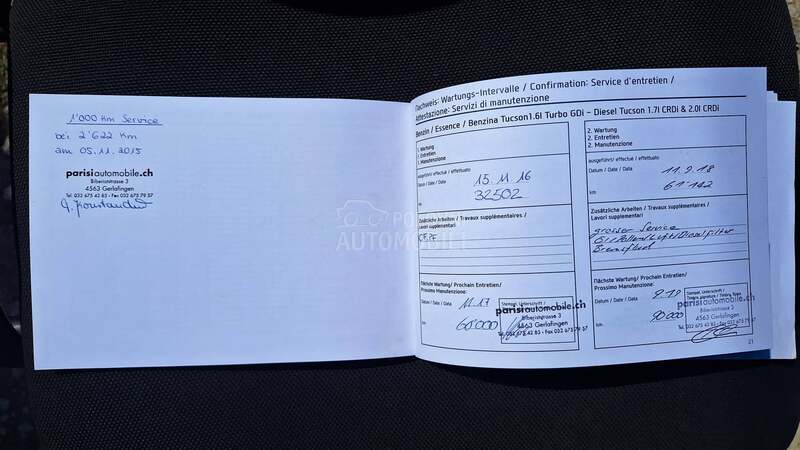 1'000 Km Service
bei 2'622 Km
am 05.11.2015
parisiautomobile.ch
Biberiststrasse 3
4563 Gerlafingen
Tel. 032 675 42 83 • Fax 032 675 79 57
Nachweis: Wartungs-Intervalle / Confirmation: Service d'entretien /
Attestazione: Servizi di manutenzione
Benzin / Essence / Benzina Tucson1.6l Turbo GDi – Diesel Tucson 1.7l CRDi & 2.0l CRDi
1. Wartung
1. Entretien
1. Manutenzione
ausgeführt/ effectué / effettuato
Datum / Date / Data 15.11.16
km 32502
Zusätzliche Arbeiten / Travaux supplémentaires /
Lavori supplementari
Nächste Wartung/ Prochain Entretien/
Prossimo Manutenzione:
Datum / Date / Data 11.17
km 60000
Stempel, Unterschrift /
parisiautomobile.ch
Biberiststrasse 3
4563 Gerlafingen
Tel. 032 675 42 83 • Fax 032 675 79 57
2. Wartung
2. Entretien
2. Manutenzione
ausgeführt/ effectué / effettuato
Datum / Date / Data 11.9.18
km 61'142
Zusätzliche Arbeiten / Travaux supplémentaires /
Lavori supplementari
grosser Service
Öl/Pollen/Luft/Dieselfilter
Bremsfluid
Nächste Wartung/ Prochain Entretien/
Prossimo Manutenzione:
Datum / Date / Data 9.19
km 90000
Stempel, Unterschrift /
Timbre, signature / Timbro, firma
parisiautomobile.ch
Biberiststrasse 3
4563 Gerlafingen
Tel. 032 675 42 83 • Fax 032 675 79 57
21
AUTOMOBILI